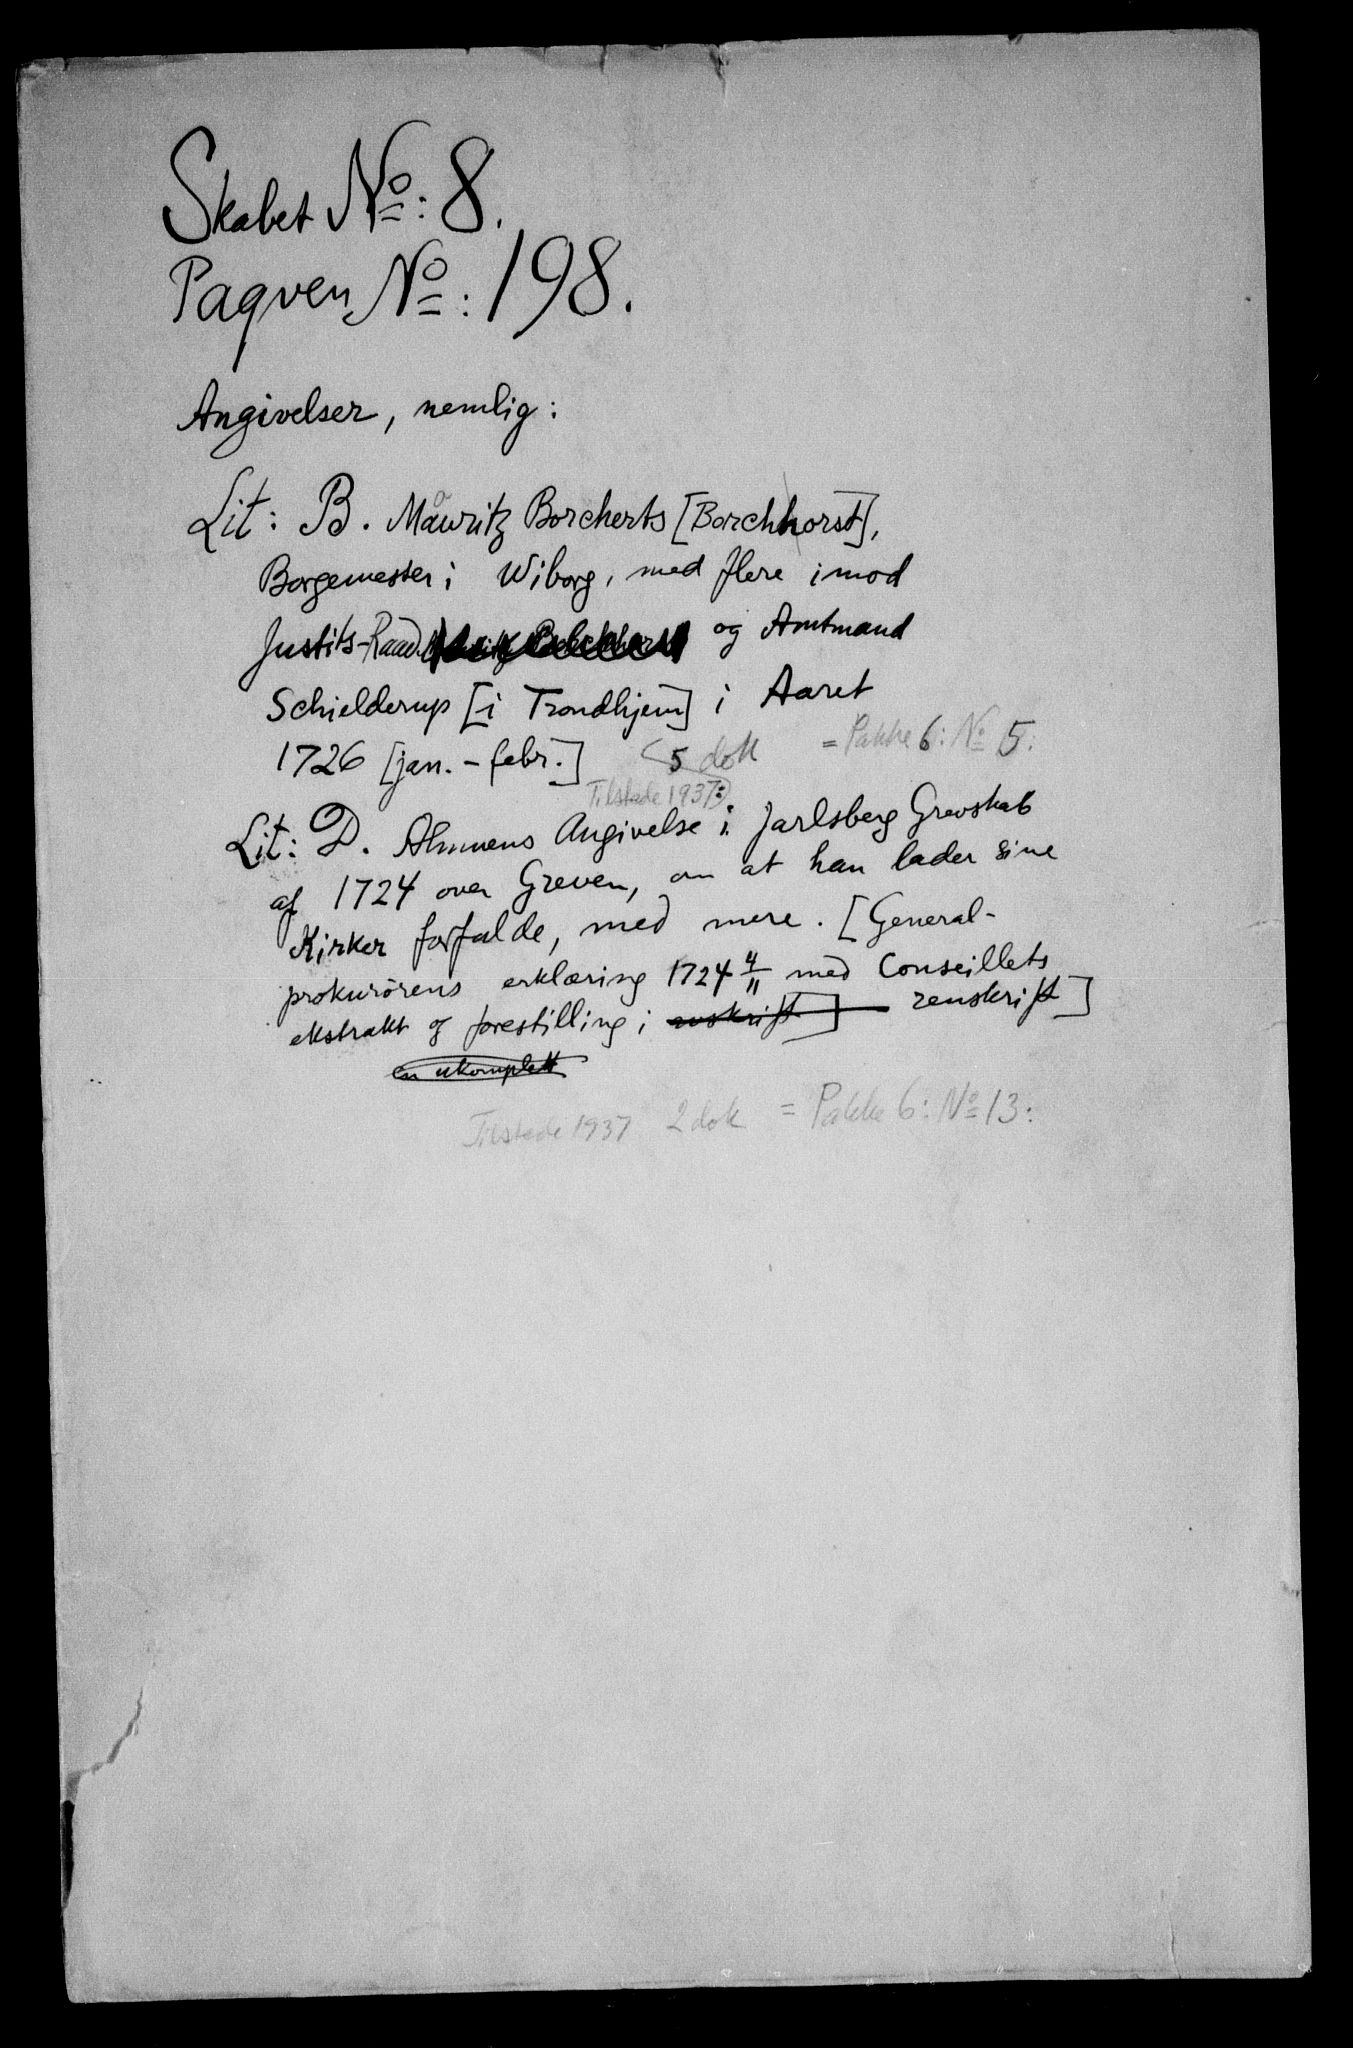 Skabet No: 8.
Paqven No: 198.
Angivelser, nemlig:
Lit: B. Mauritz Borcherts [Borchhorst],
Borgemester i Wiborg, med flere imod
Justits-Raad og Amtmand
Schielderup [i Trondhjem] i Aaret
1726 [jan. - febr.] (5 dok = Pakke 6: No 5:
Tilstede 1937)
Lit: D. Almuens Angivelse i Jarlsberg Grevskab
af 1724 over Greven, om at han lader sine
Kirker forfalde, med mere. [General-
prokurörens erklæring 1724 4/11 med Conseillets
ekstrakt og forestilling i avskrift] renskrift]
en ukomplett
Tilstede 1937 2 dok = Pakke 6: No 13: